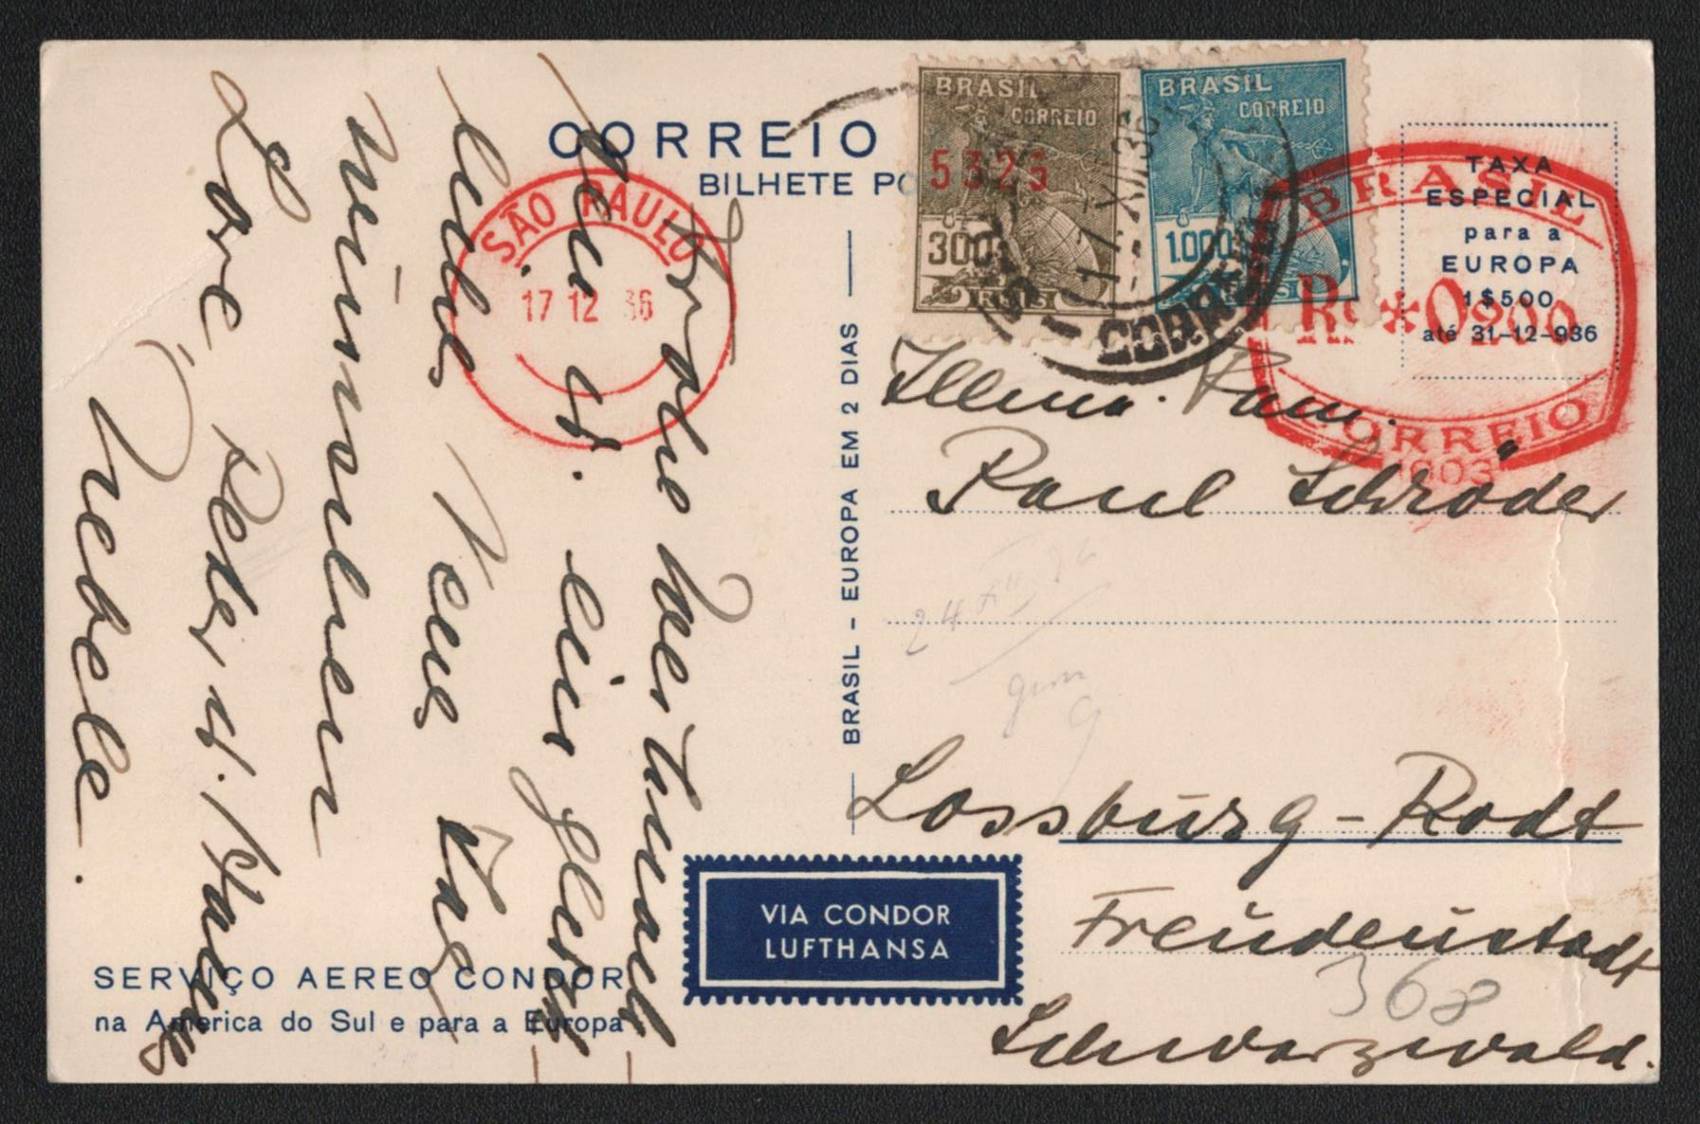 CORREIO
BILHETE PO
BRASIL
CORREIO
5326
300
RÉIS
BRASIL
CORREIO
1.000
RÉIS
17 XII 36
CORREIO
TAXA
ESPECIAL
para a
EUROPA
1$500
até 31-12-936
BRASIL
Rs *0200
CORREIO
SÃO PAULO
17 12 36
BRASIL - EUROPA EM 2 DIAS
Frohe Weihnacht
u. ein
Neues
wünschen
Lore, Peter u. Hannes
Nebele.
Illma. Fam.
Paul Schröder
24 XII 36
Lossburg - Rodt
Freudenstadt
368
Schwarzwald.
VIA CONDOR
LUFTHANSA
SERVIÇO AEREO CONDOR
na America do Sul e para a Europa